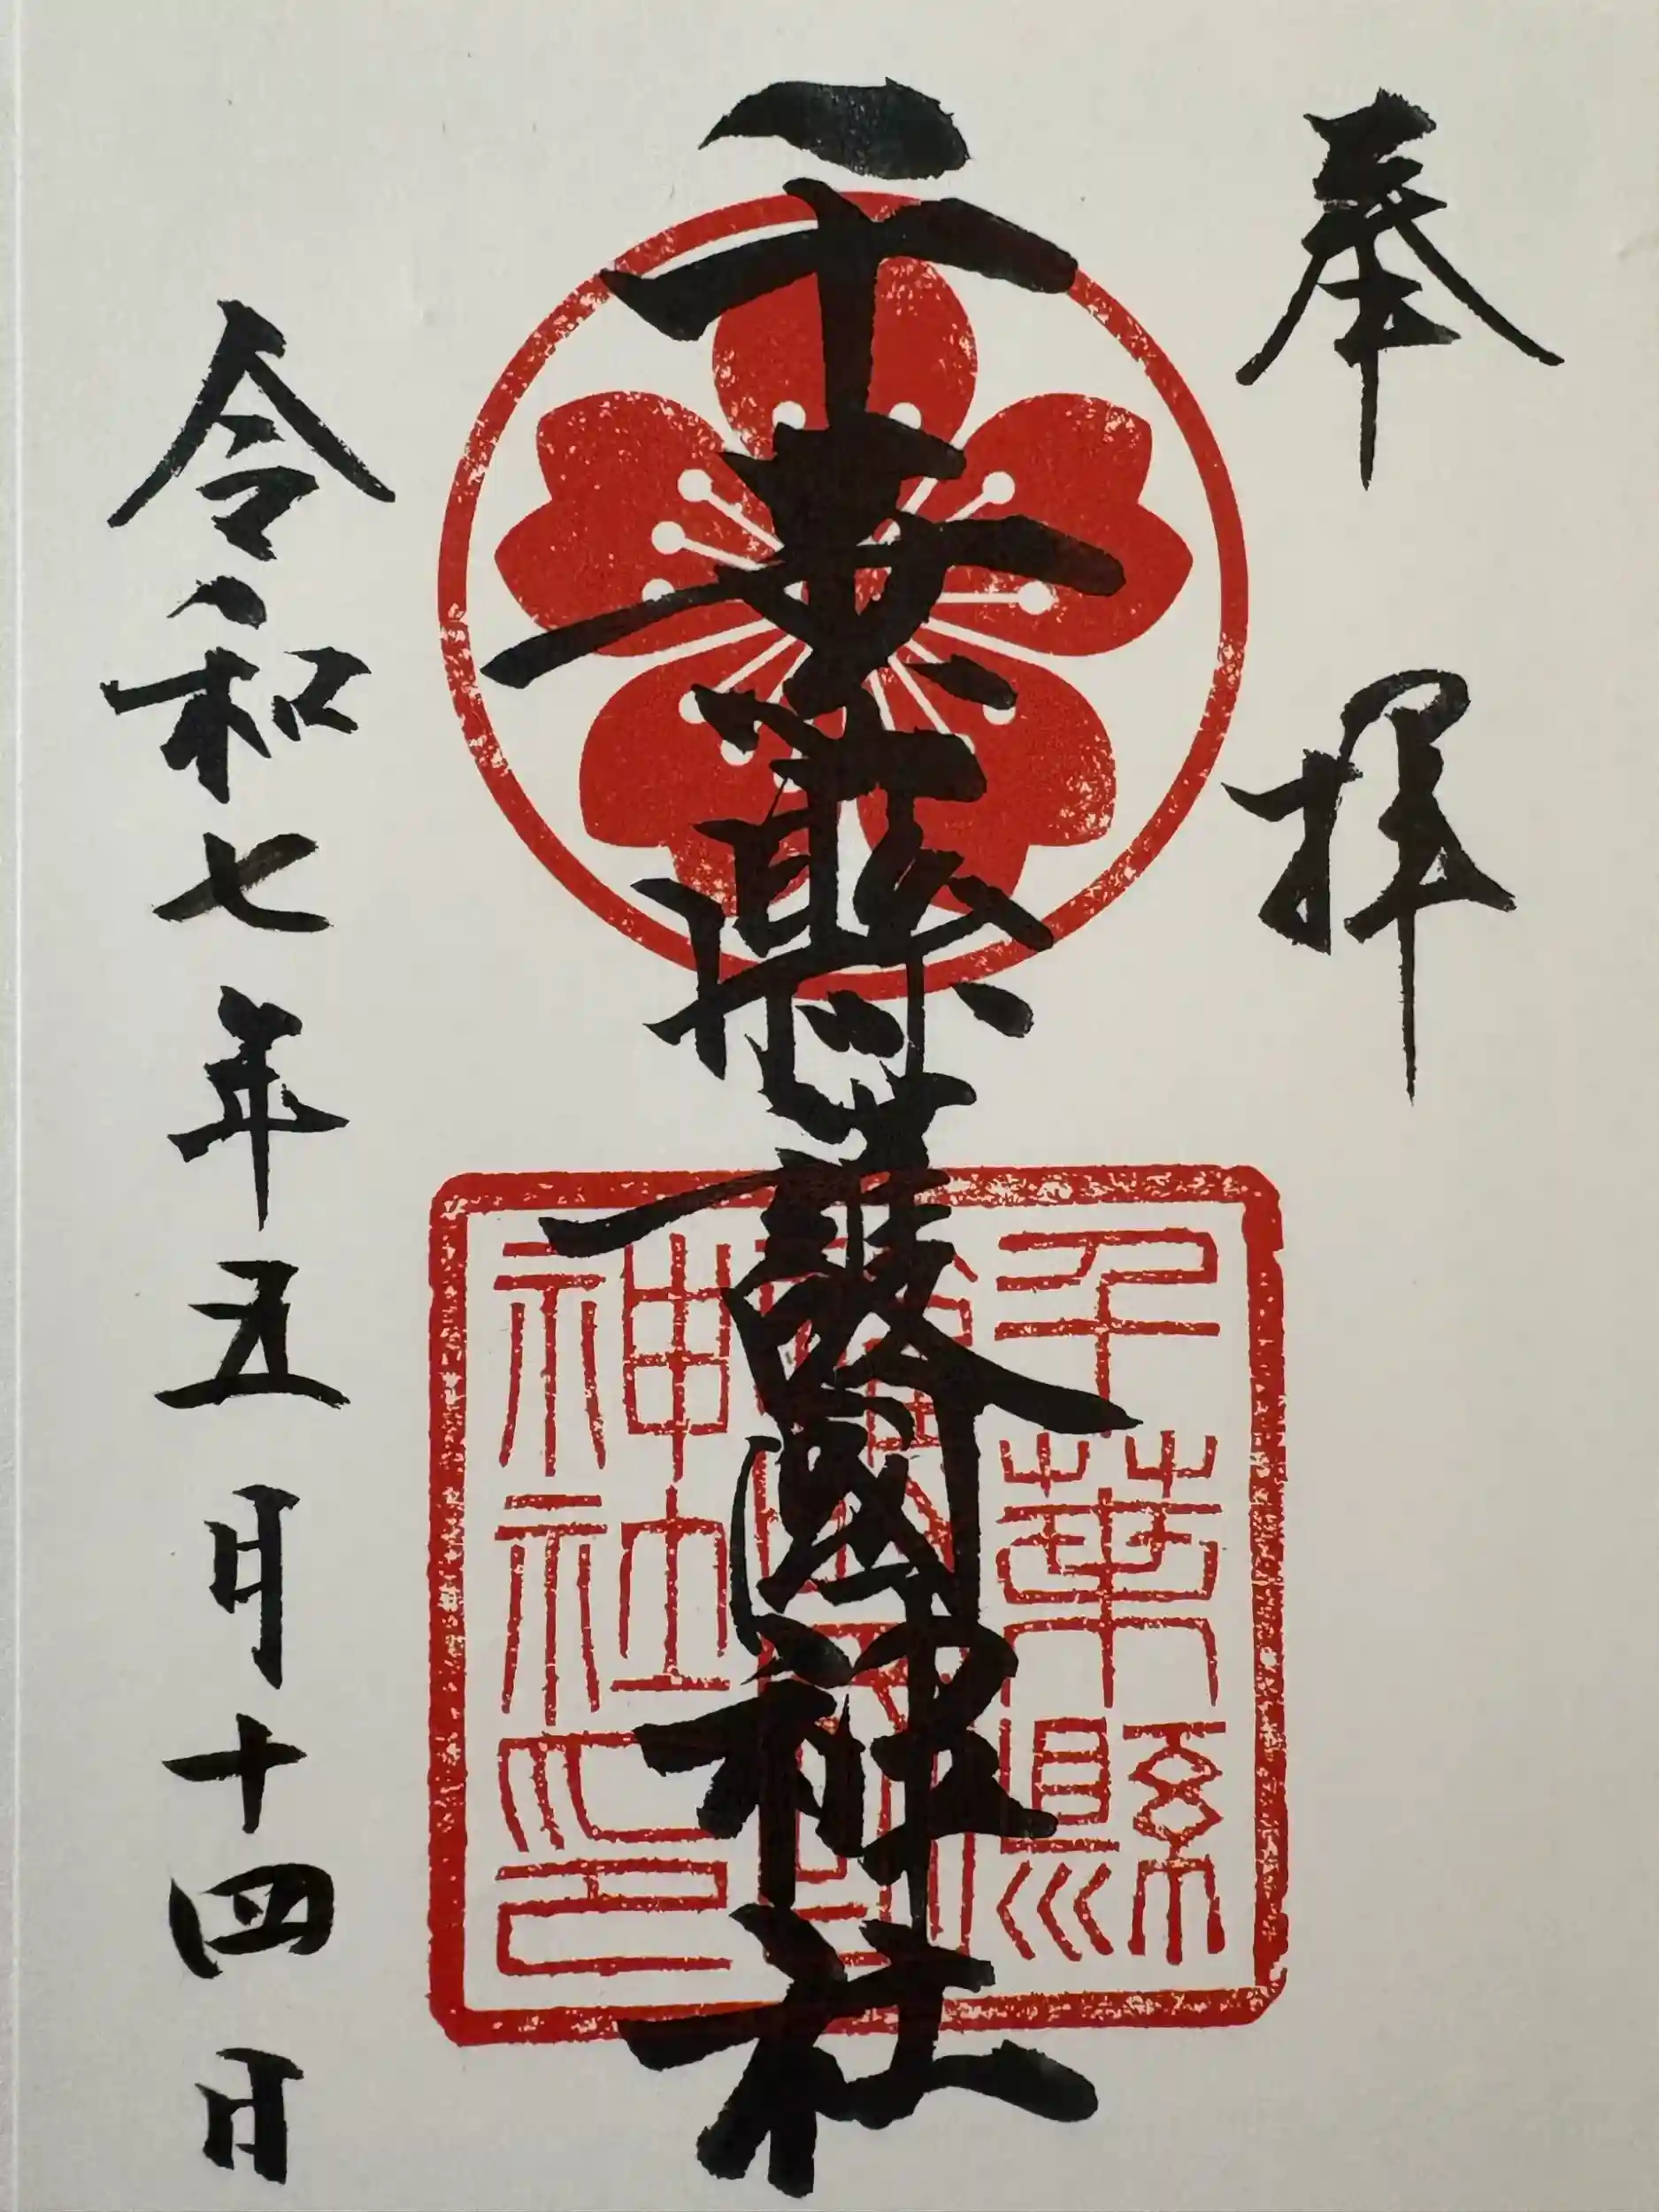 奉拝
千葉縣護國神社
千葉縣
護國
神社之印
令和七年五月十四日